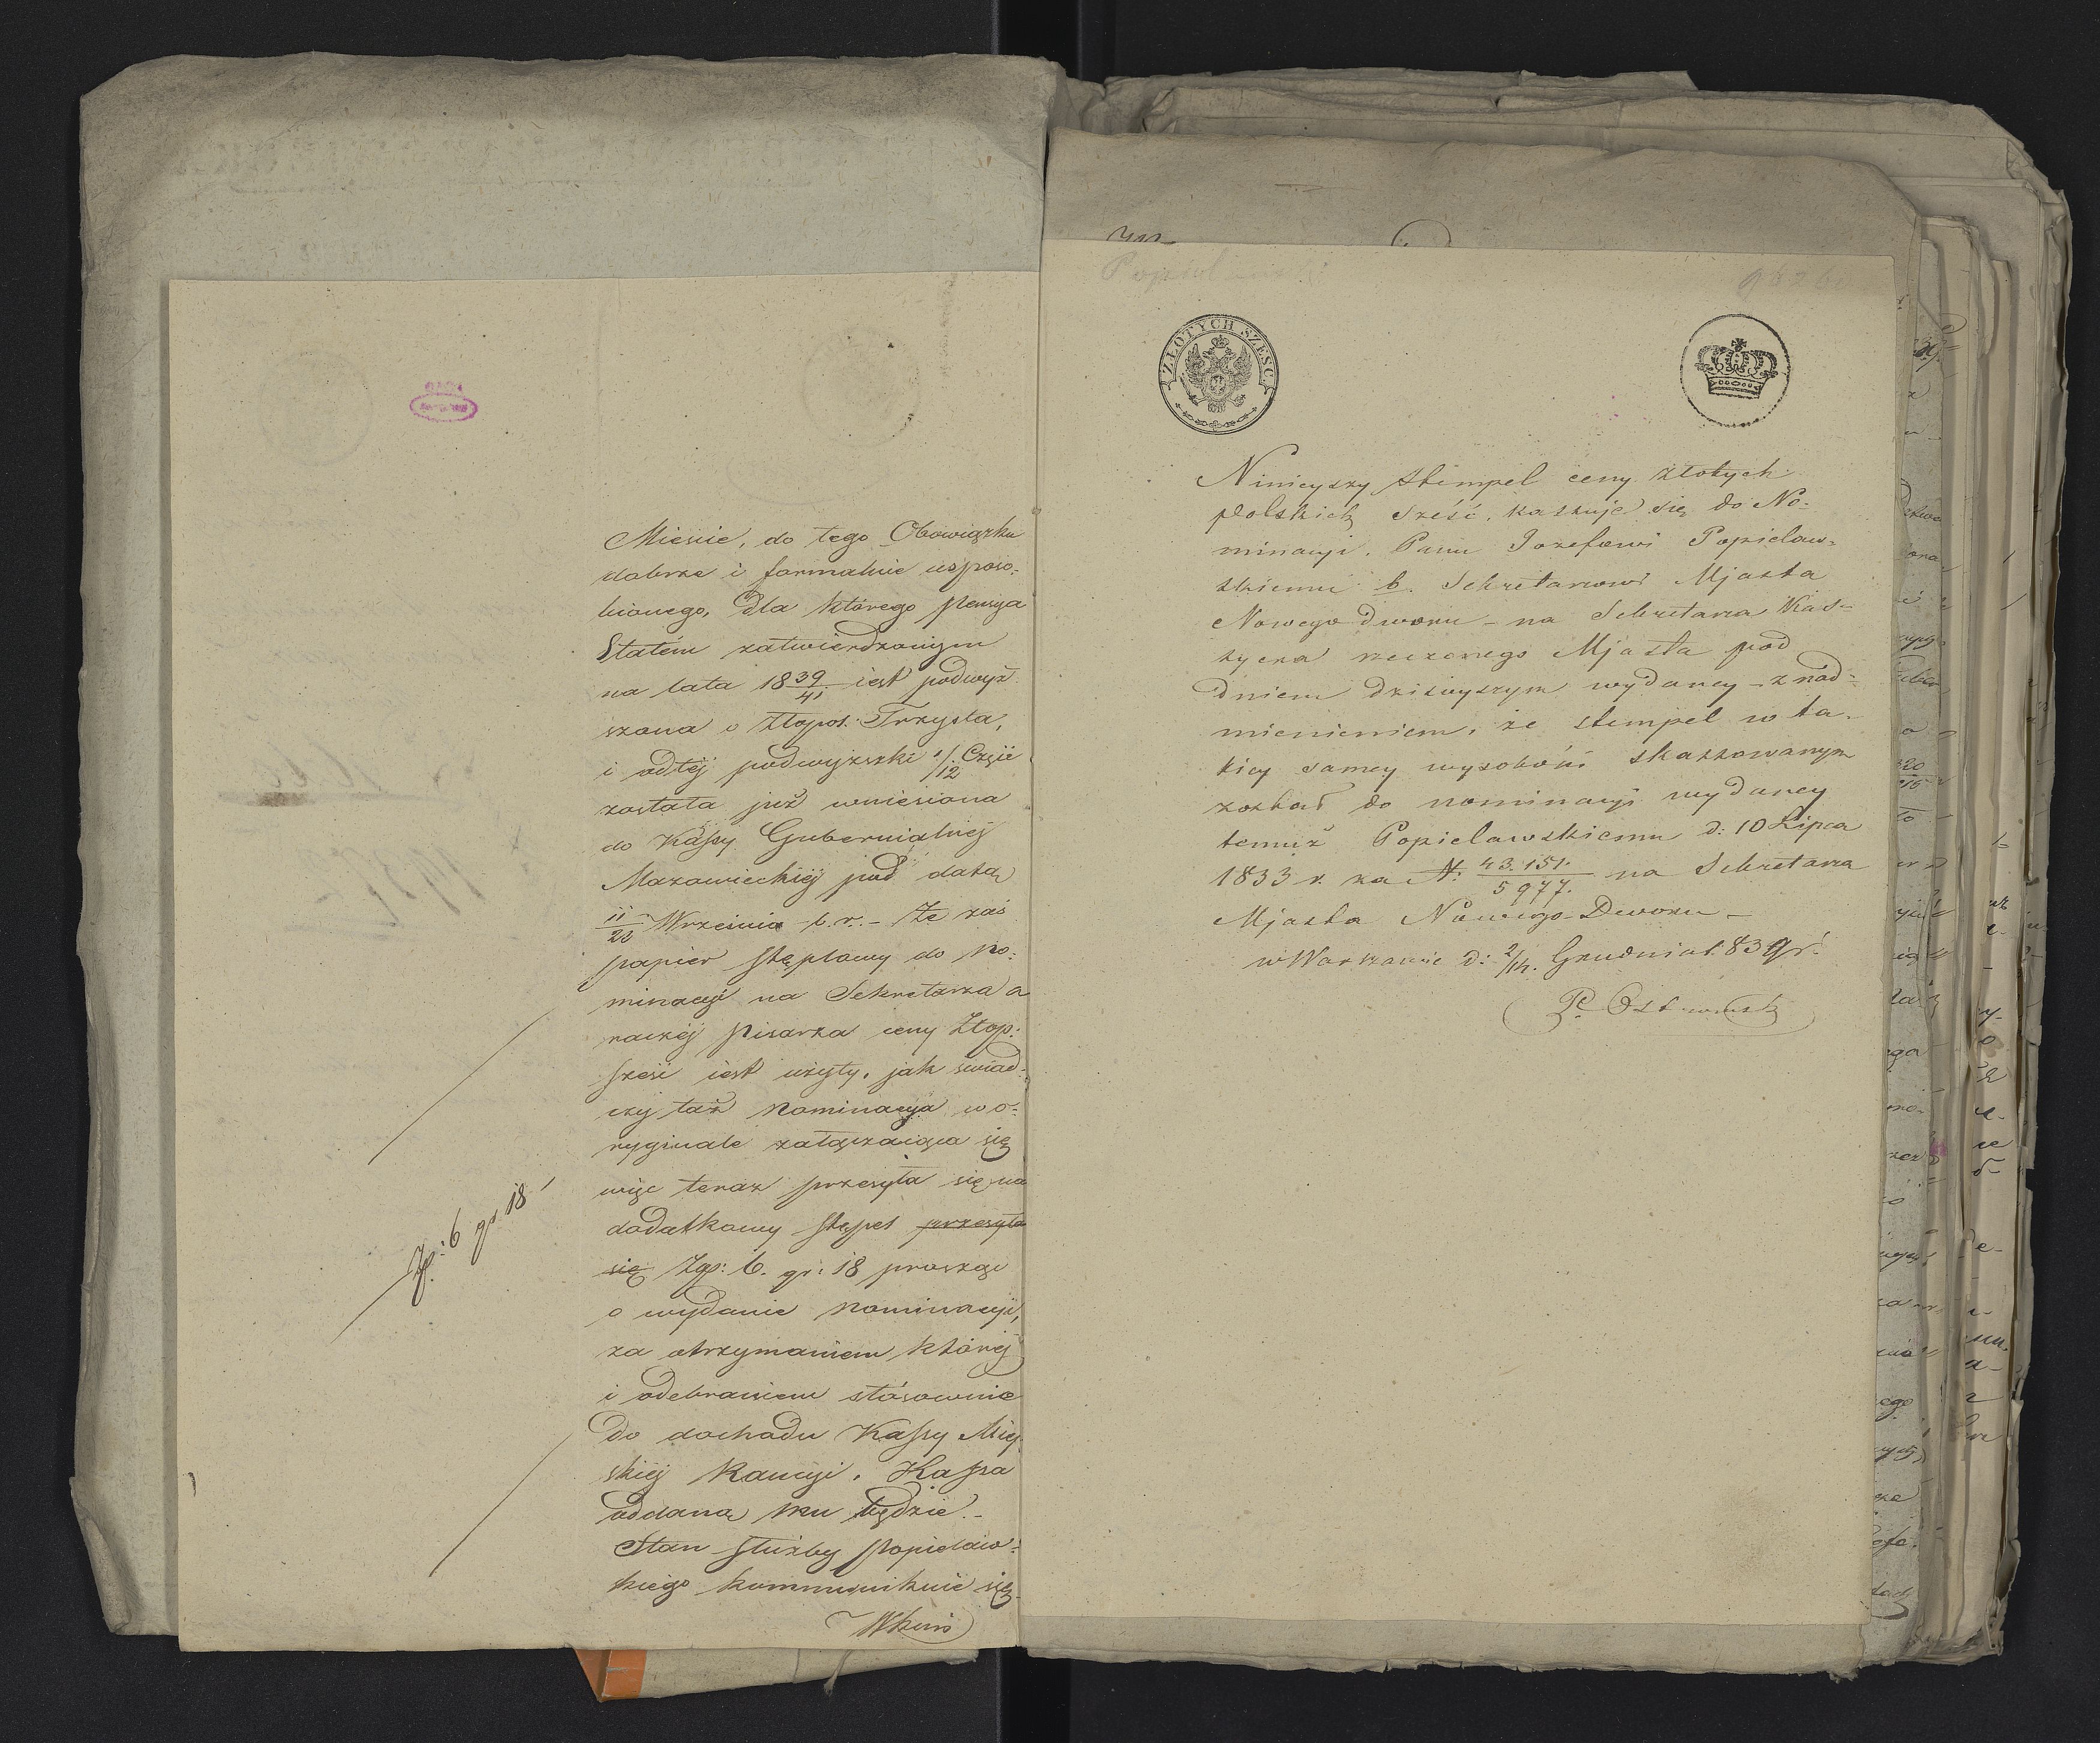 Mieście, do tego Obowiązku
dobrze i formalnie usposo=
bionego, dla którego pensya
Etatem zatwierdzonym
na lata 18 39/41 iest podwyż
szona o Złopol. Trzysta,
i odtéj podwyższki 1/12 Część
została już wniesiona
do Kassy Gubernialnéj
Mazowieckiéj pod datą
11/22 Września b. r. – Że zaś
papier stęplowy do No=
minacyi na Sekretarza a
raczéj pisarza ceny Złop:
sześć iest użyty, jak świad=
czy taż Nominacya w o=
ryginale załączaiąca się
więc teraz przesyła się na
dodatkowy stępel przesyła
się Zp: 6. gr: 18 proszę
o wydanie nominacyi,
za otrzymaniem któréj
i odebraniem stósownie
do dochodu Kassy Miey
skiéj Kaucyi. Kassa
oddaną mu będzie. –
Stan służby Popielaw=
skiego kommunikuie się
Zp: 6 gr 18
ZŁOTYCH SZEŚĆ
Ninieyszy stempel ceny złotych
polskich sześć, kassuje się do No=
minacyi. Panu Jozefowi Popielaw=
skiemu b. Sekretarzowi Mjasta
Nowego dworu – na Sekretarza Kas=
syera rzeczonego Mjasta pod
dniem dzisieyszym wydaney – z nad=
mienieniem, że stempel w ta=
kiey samey wysokości skassowanym
został do nominacyi wydaney
temuż Popielawskiemu d: 10 Lipca
1833 r. za N: 43.151./5977. na Sekretarza
Mjasta Nowego-Dworu –
w Warszawie d: 2/14. Grudnia 1839 r.